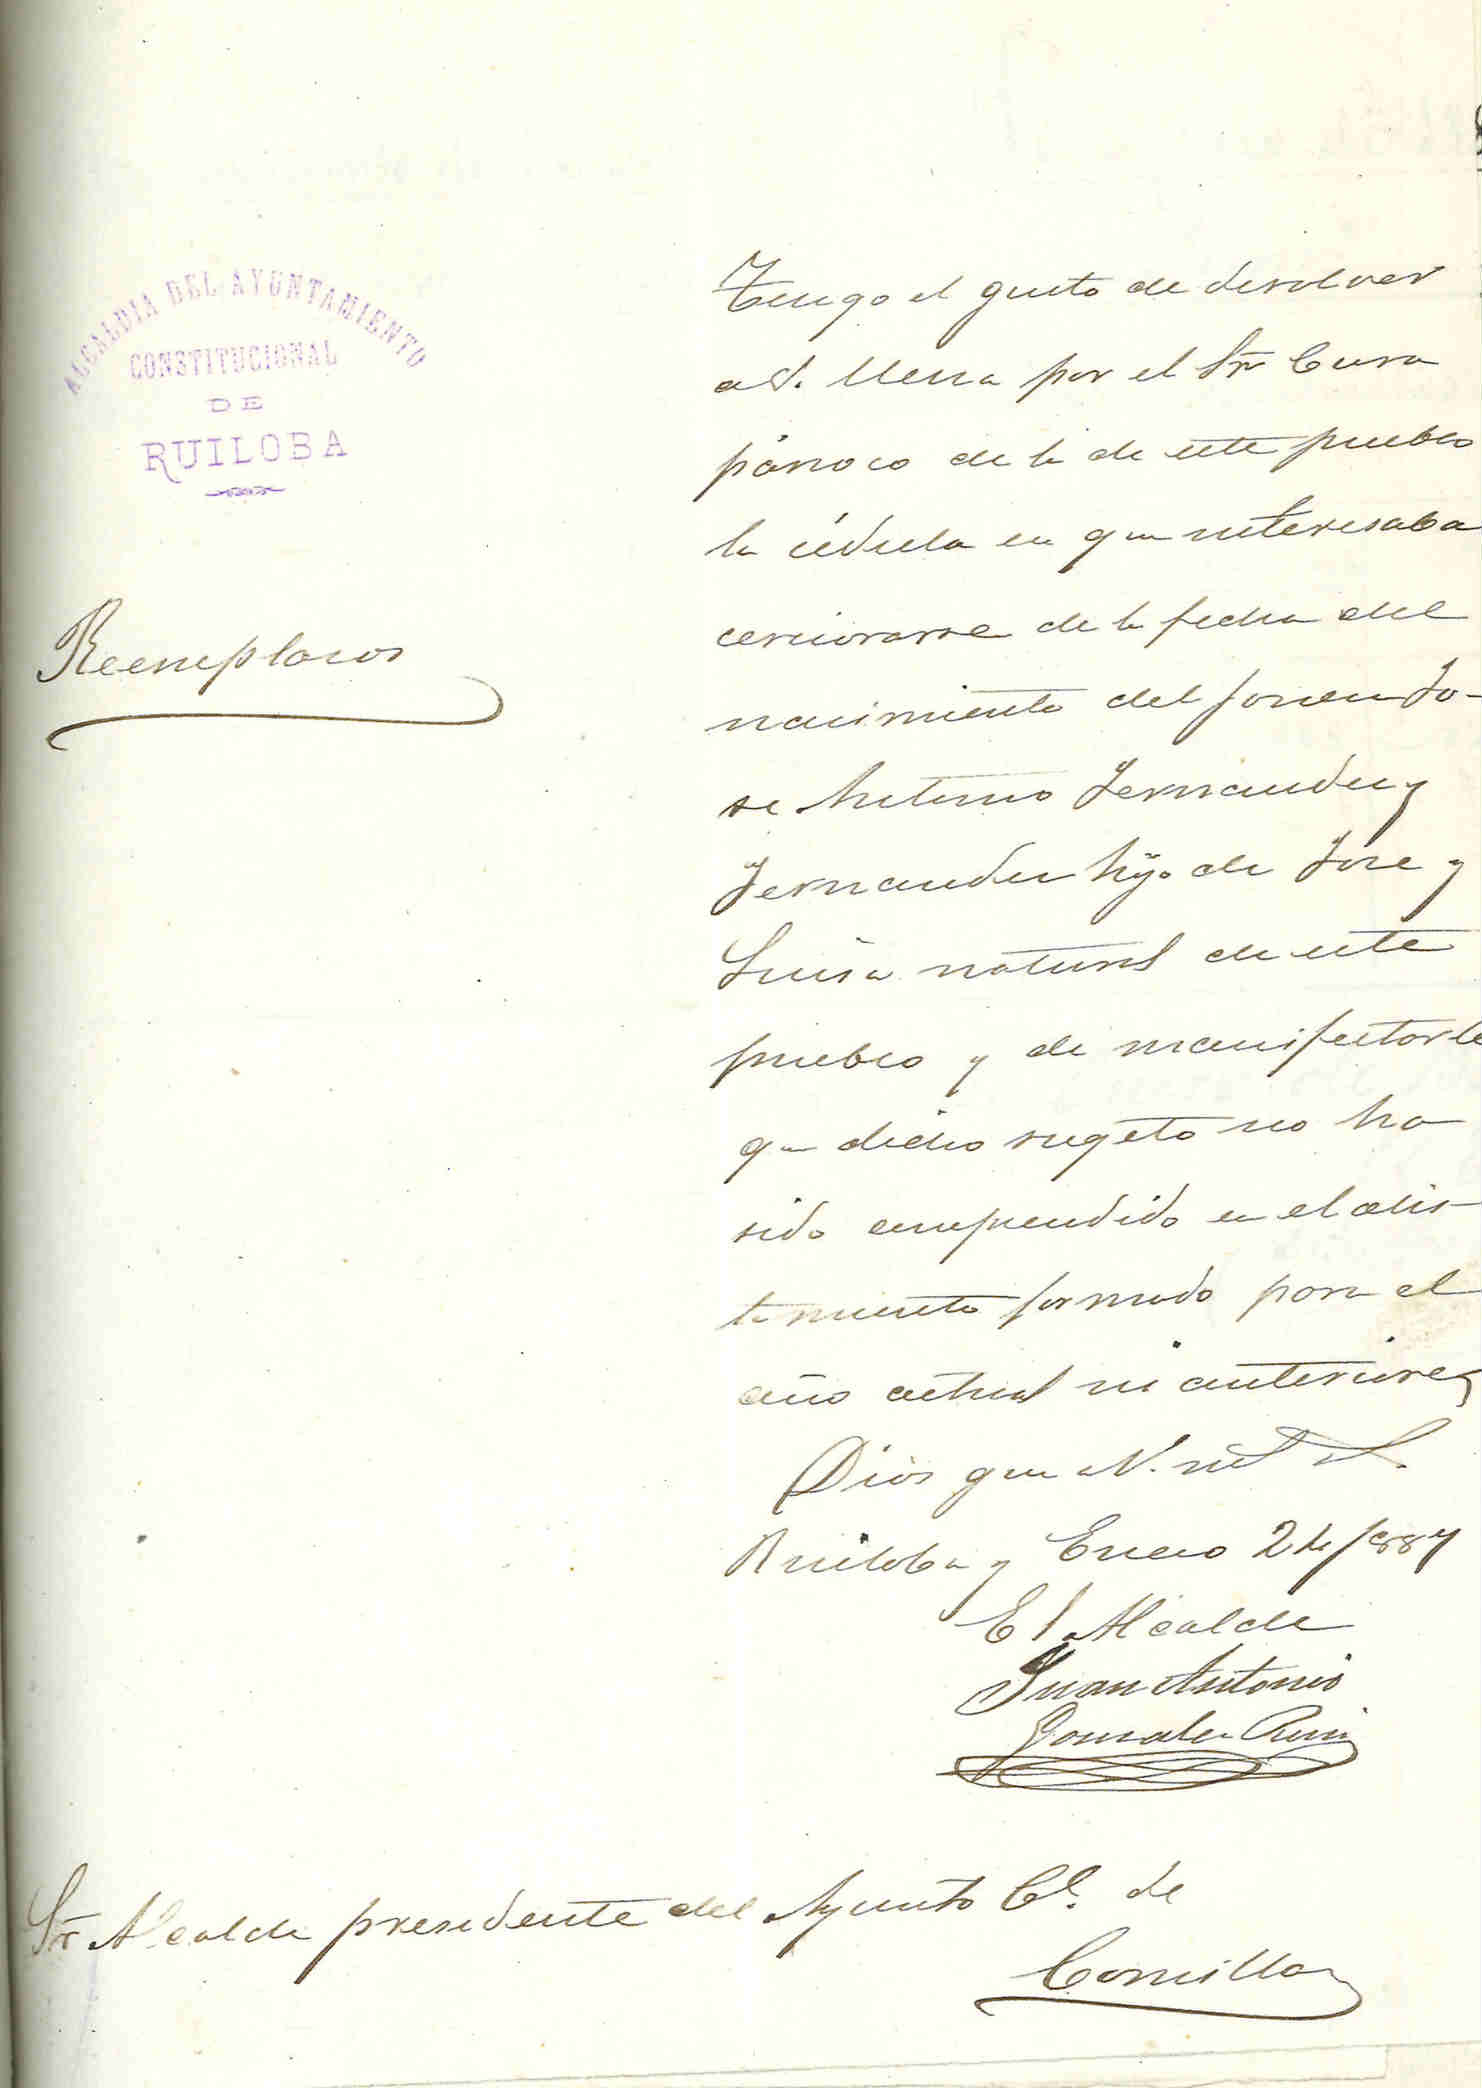 ALCALDIA DEL AYUNTAMIENTO
CONSTITUCIONAL
DE
RUILOBA
Reemplazos
Tengo el gusto de devolver
a V. llena por el Sr Cura
párroco de la de este pueblo
la cédula en que interesaba
cerciorarse de la fecha del
nacimiento del joven Jo-
se Antonio Fernandez y
Fernandez hijo de Jose y
Luisa natural de este
pueblo y de manifestarle
que dicho sugeto no ha
sido comprendido en el alis-
tamiento formado para el
año actual ni anteriores
Dios gue a V. ms As.
Ruiloba y Enero 24/887
El Alcalde
Juan Antonio
Gonzalez Ruiz
Sr Alcalde presidente del Ayunto Cl. de
Comillas